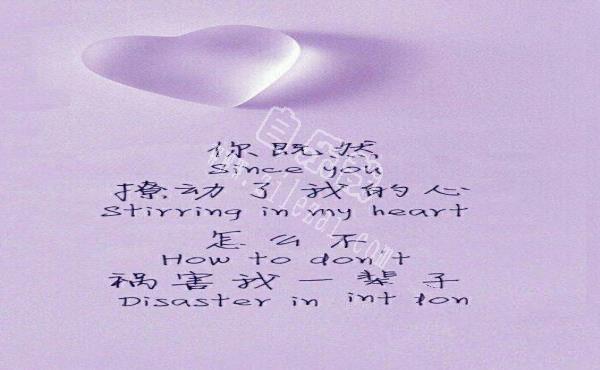 你既然
Since you
撩动了我的心
Stirring in my heart
怎么不
How to don't
祸害我一辈子
Disaster in int lon